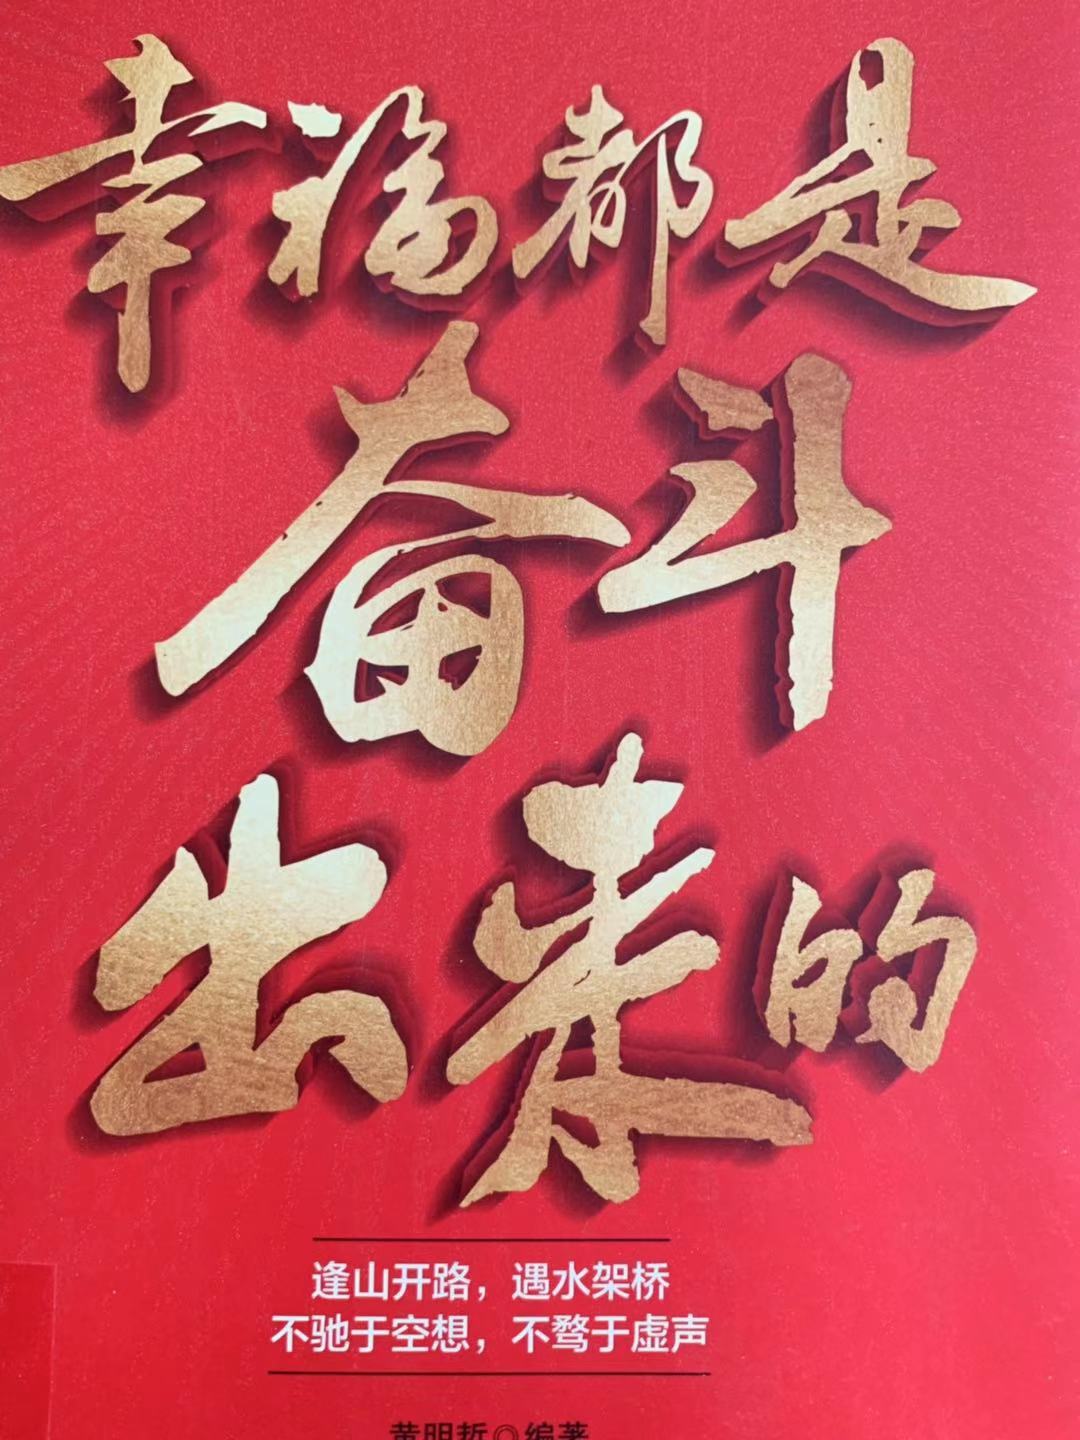 幸福都是
奋斗
出来的
逢山开路，遇水架桥
不驰于空想，不骛于虚声
黄明哲◎编著